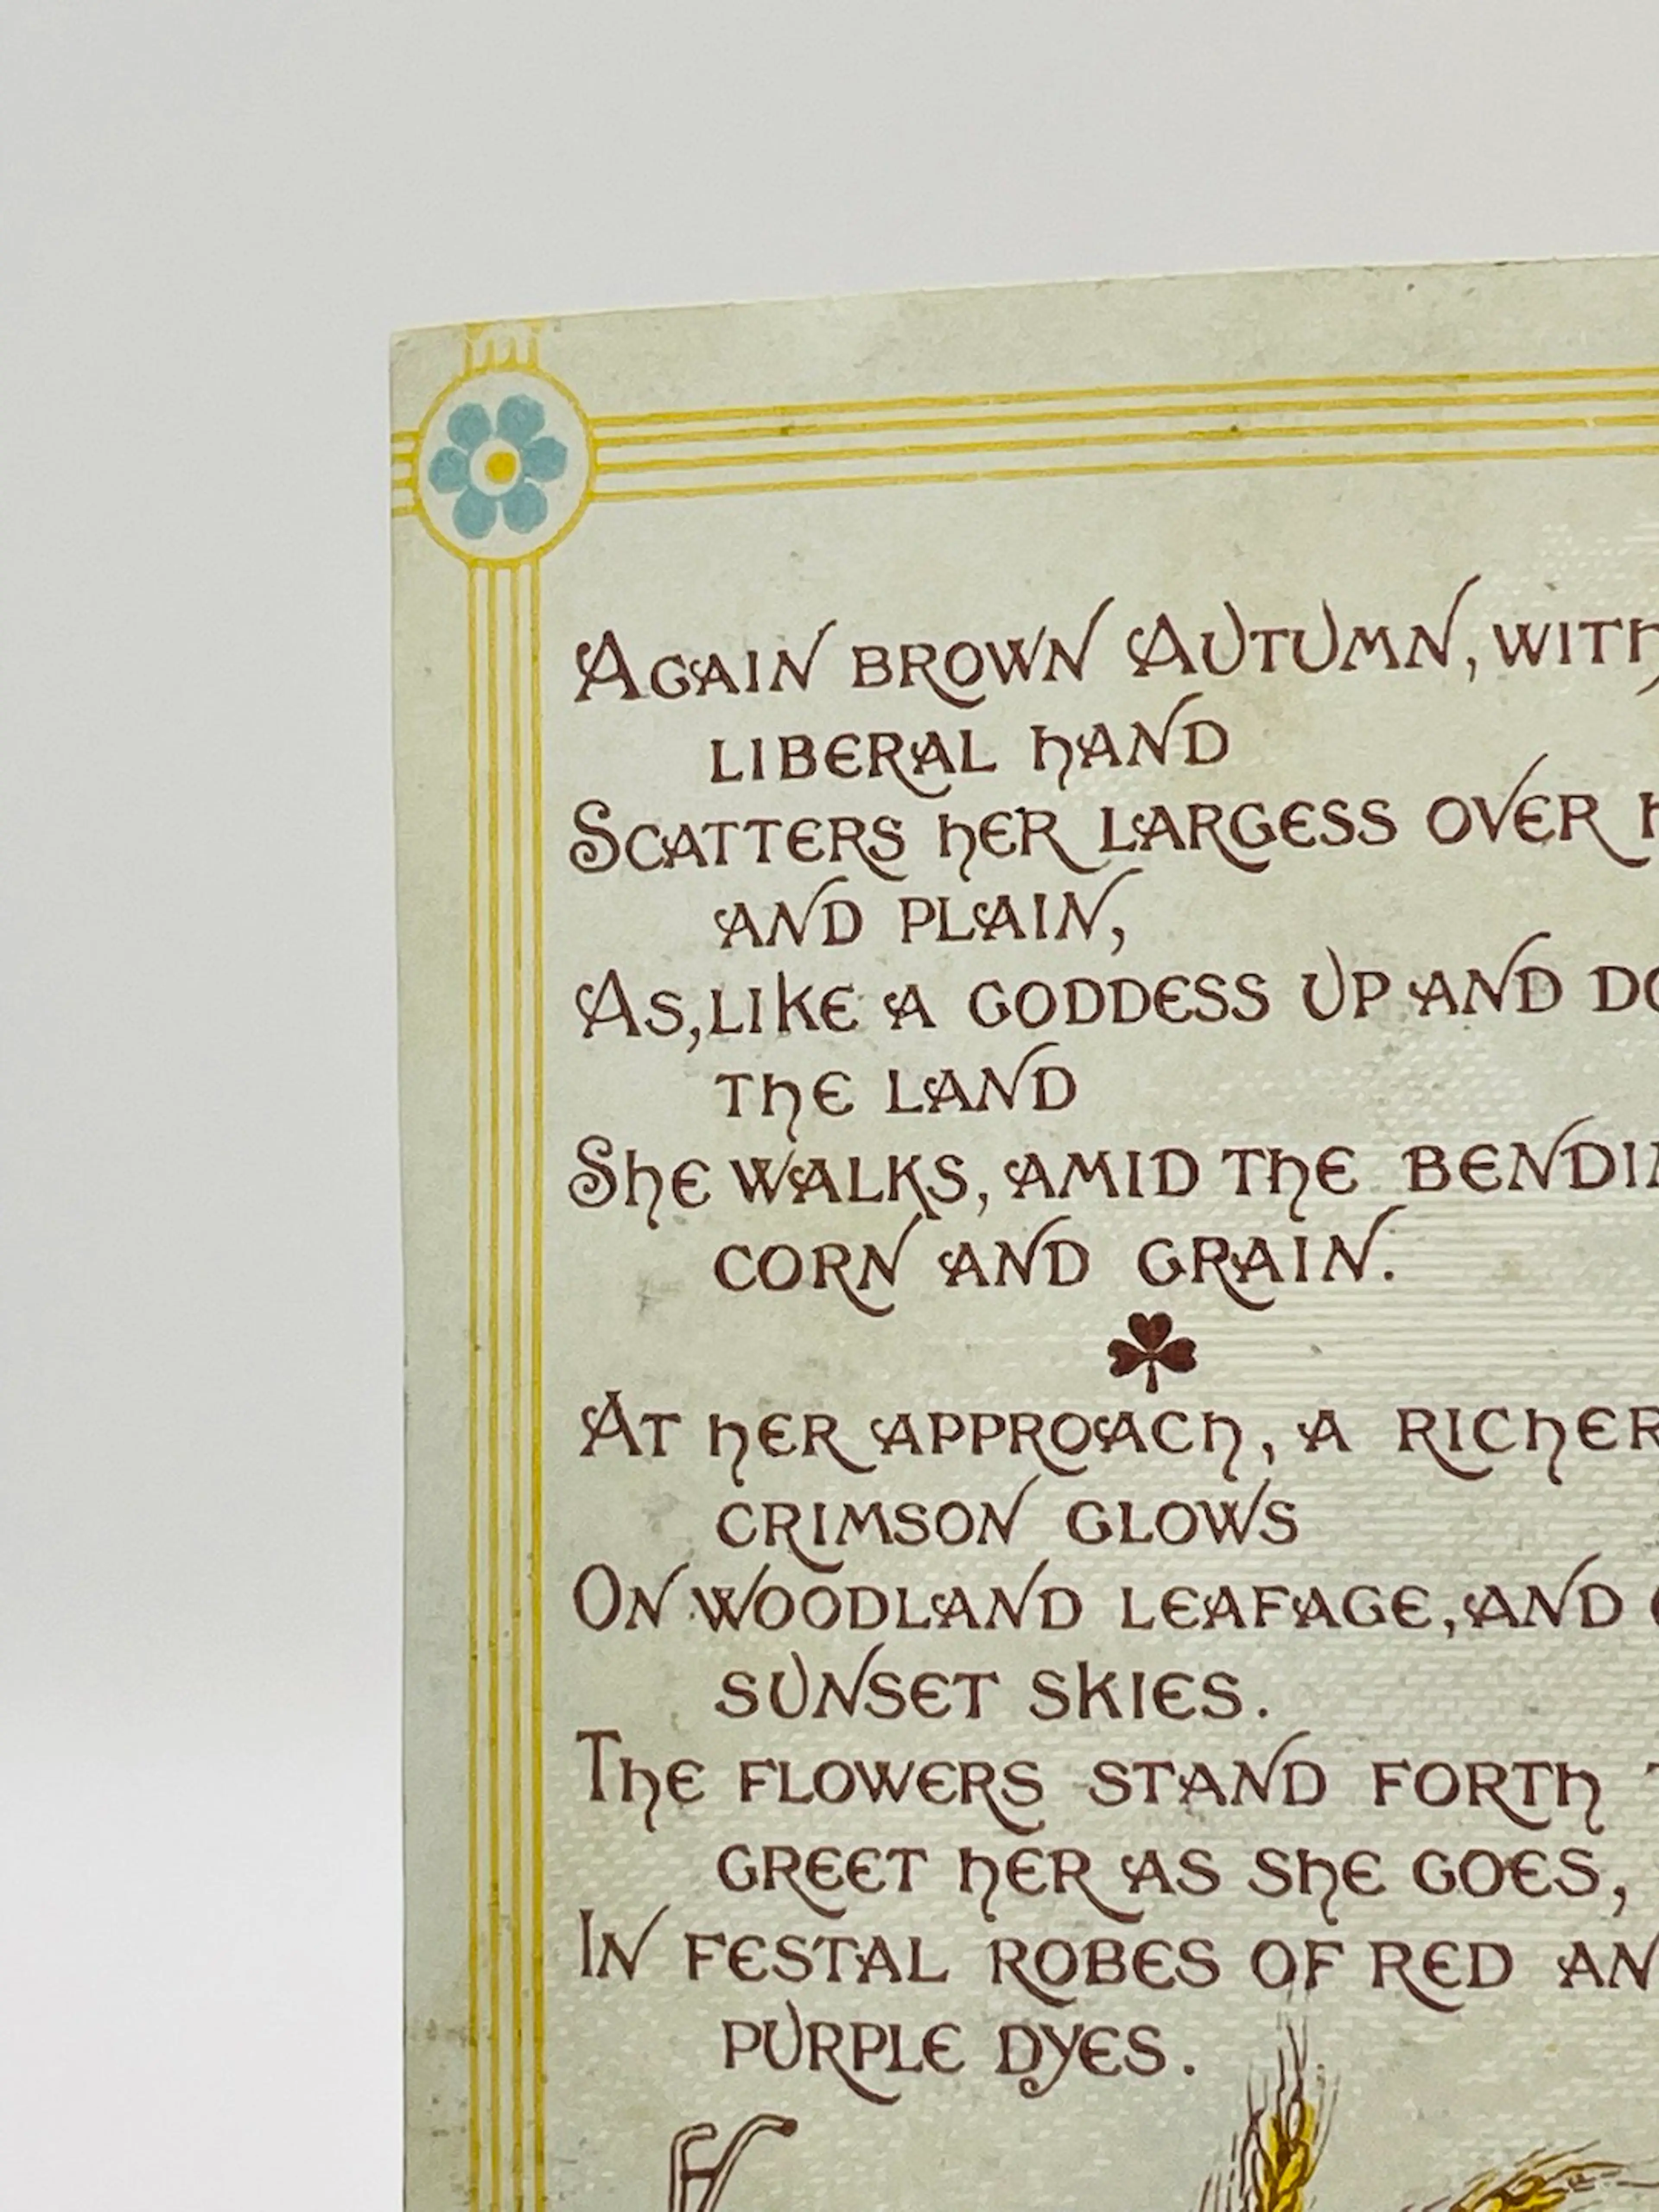 Again brown Autumn, with
liberal hand
Scatters her largess over
and plain,
As, like a goddess up and
the land
She walks, amid the
corn and grain.
At her approach, a richer
crimson glows
On woodland leafage, and
sunset skies.
The flowers stand forth
greet her as she goes,
In festal robes of red
purple dyes.